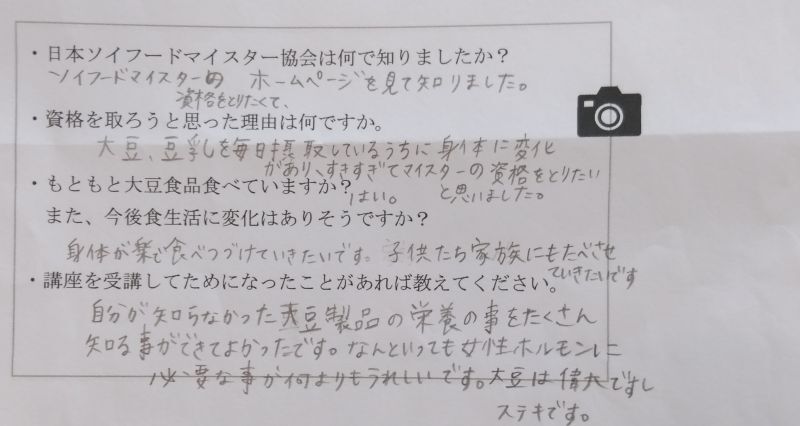 ・日本ソイフードマイスター協会は何で知りましたか？
ソイフードマイスターの ホームページを見て知りました。
資格をとりたくて、
・資格を取ろうと思った理由は何ですか。
大豆、豆乳を毎日摂取しているうちに身体に変化
があり、すきすぎてマイスターの資格をとりたい
・もともと大豆食品食べていますか？
はい。 と思いました。
また、今後食生活に変化はありそうですか？
身体が楽で食べつづけていきたいです。子供たち家族にもたべさせ
ていきたいです
・講座を受講してためになったことがあれば教えてください。
自分が知らなかった大豆製品の栄養の事をたくさん
知る事ができてよかったです。なんといっても女性ホルモンに
必要な事が何よりもうれしいです。大豆は偉大ですし
ステキです。